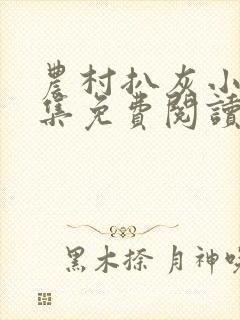 農村扒灰小
集免費閱讀
黑木捺 月神